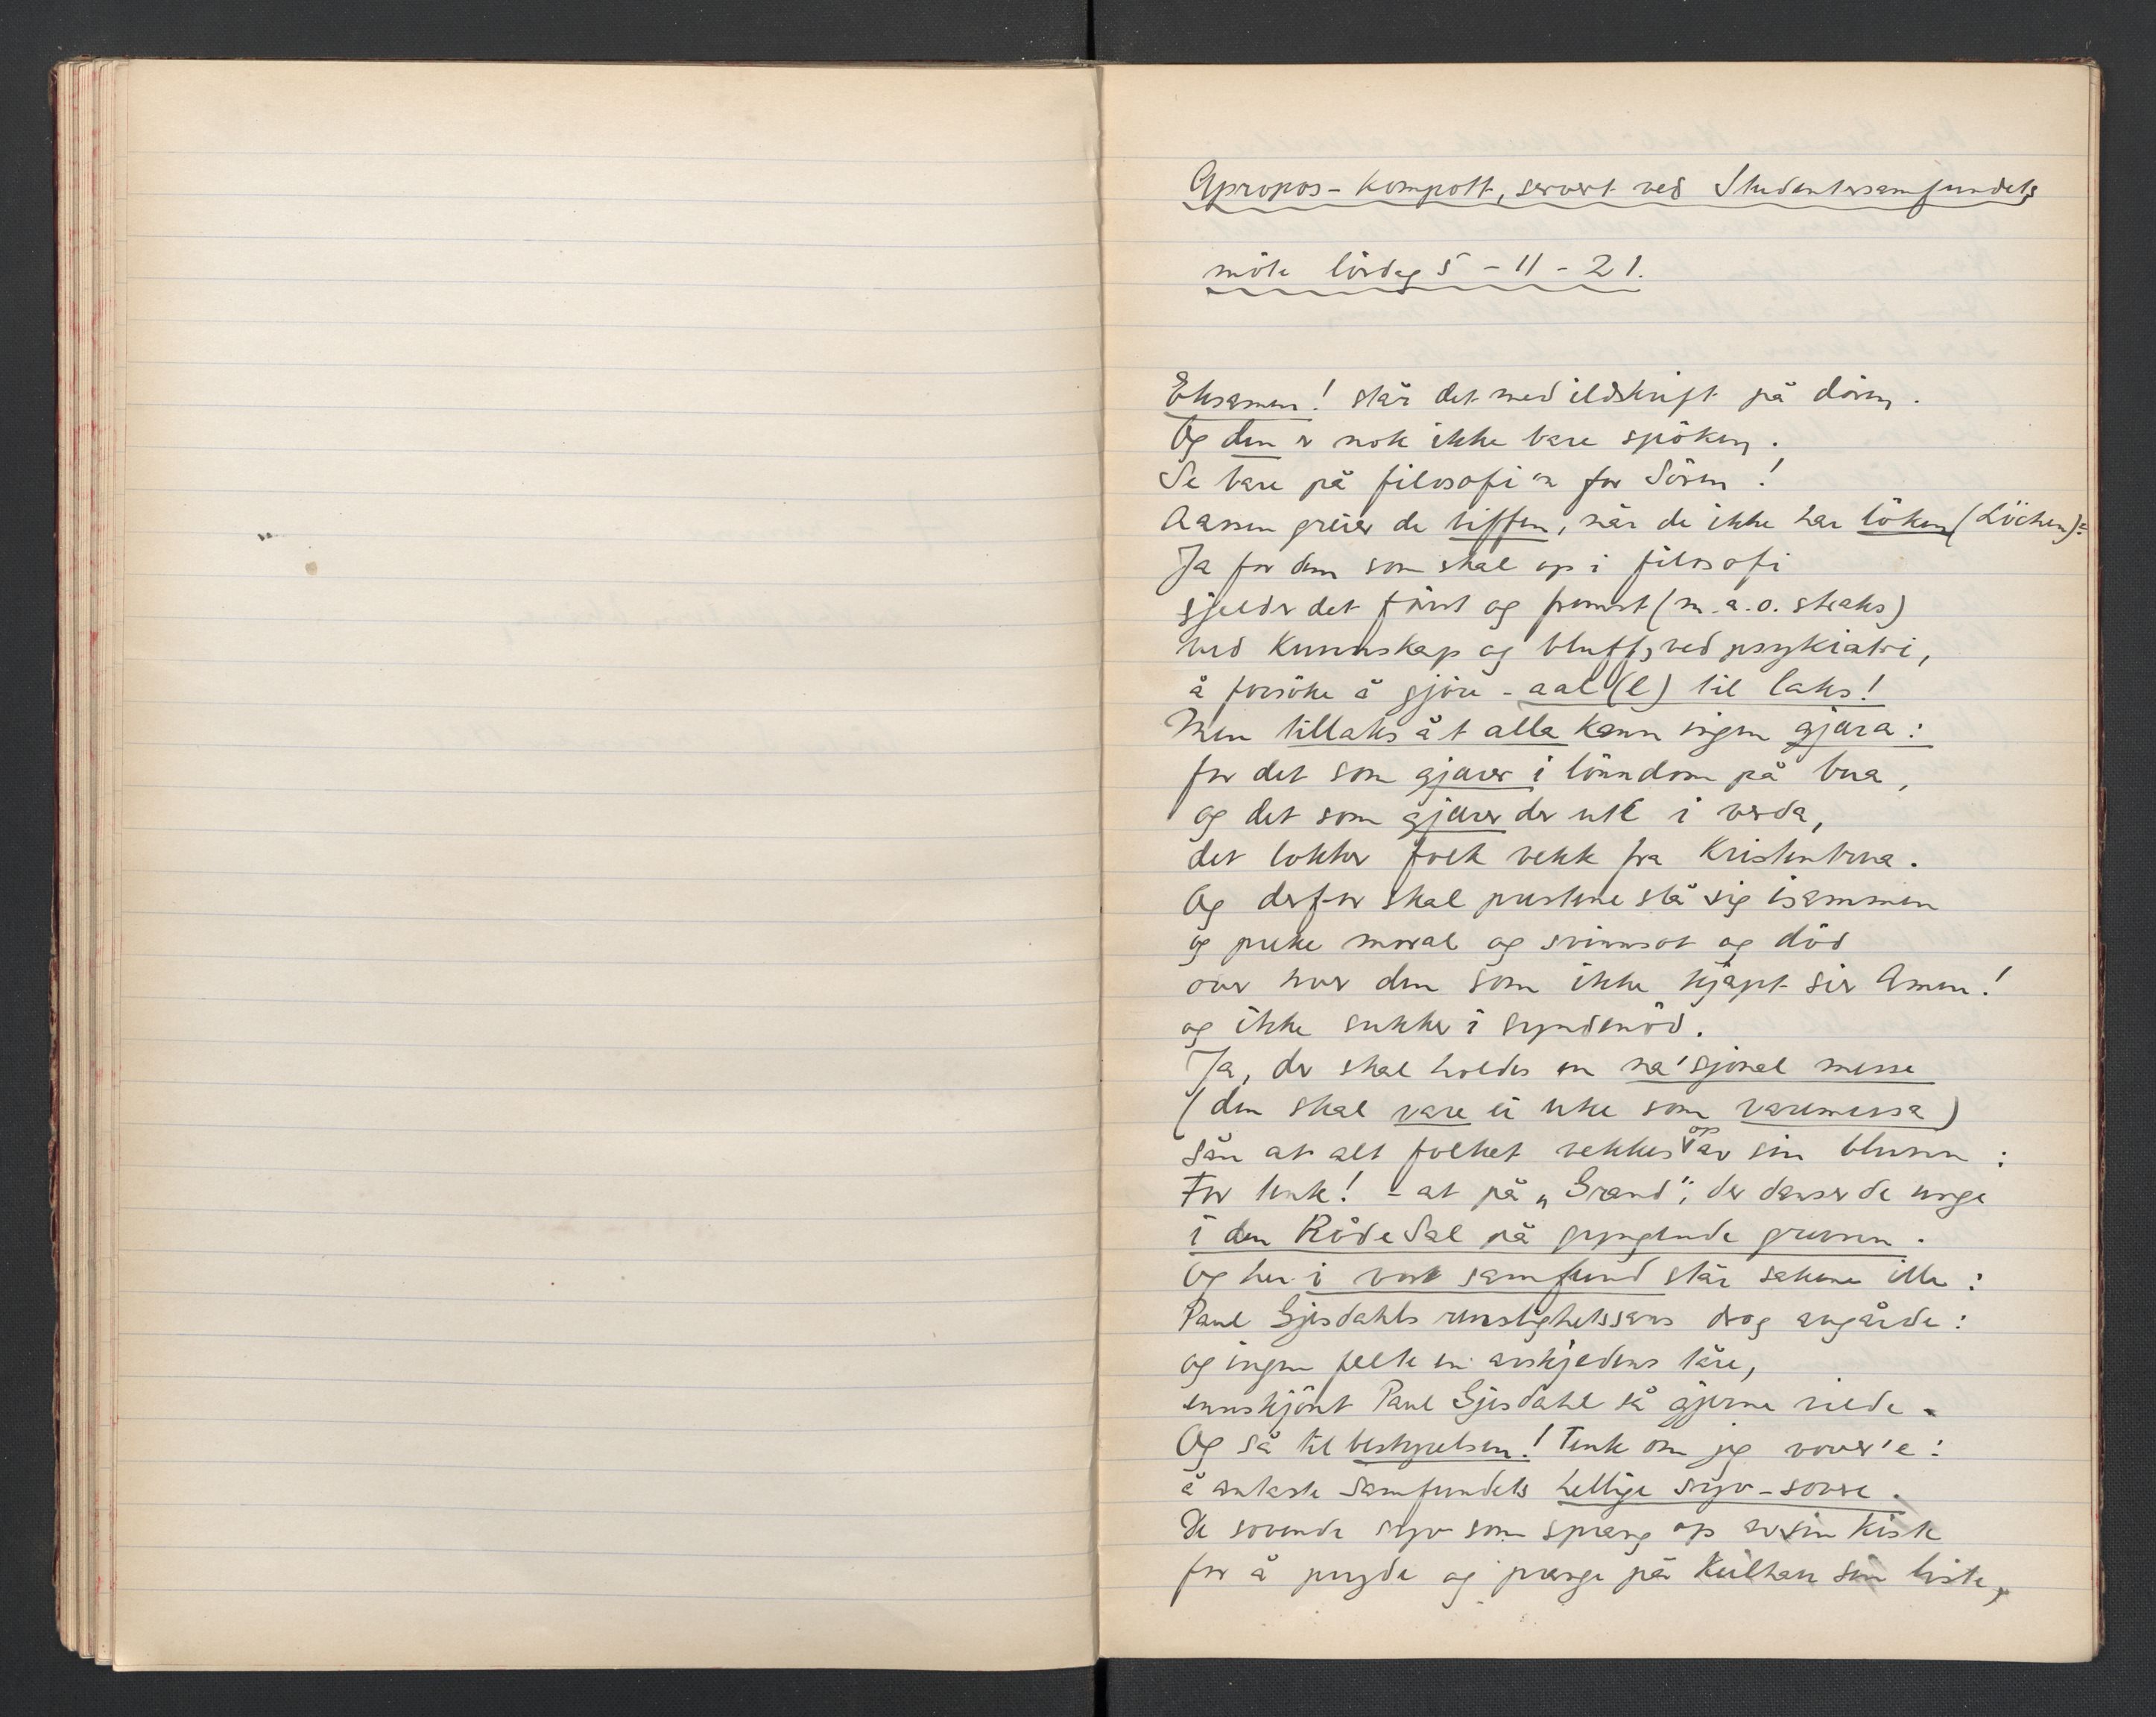 Apropos-kompott, servert ved Studentersamfundets
möte lördag 5-11-21.
Eksamen! står det med ildskrift på dören.
Og den er nok ikke bare spöken.
Se bare på filosofi'n for Sören!
Aassen greier de biffen, når de ikke har löken (Löchen):
Ja for dem som skal op i filosofi
gjelder det först og fremst (m.a.o. straks)
ved kunnskap og bluff, ved psykiatri,
å forsöke å gjöre - aal(l) til laks!
Men tillaks åt alla kann ingen gjära:
for det som gjærer i lönndom på bua,
og det som gjærer der ute i verda,
det lokker folk vekk fra Kristentrua.
Og derfor skal prestene slå sig isammen
og preke moral og svinnsot og död
over hver den som ikke kjapt sier Amen!
og ikke sukker i syndenöd.
Ja, der skal holdes en na'sjonal messe
(den skal vare ei uke som varemessa)
sån at alt folket vekkes op av sin blunn :
For tenk! - at på „Grand", der danser de unge
i den Röde Sal på gyngende grunn.
Og her i vort samfund står sakene ille:
Paul Gjesdahls renslighetssans drog avgårde:
og ingen felte en avskjedens tåre,
ennskjönt Paul Gjesdahl så gjerne vilde.
Og så til bestyrelsen! Tenk om jeg vover'e:
å antaste Samfundets hellige syv-sovere.
De sovende syv som sprang op av sin kiste
for å pryde og prange på Keilhau sin liste,